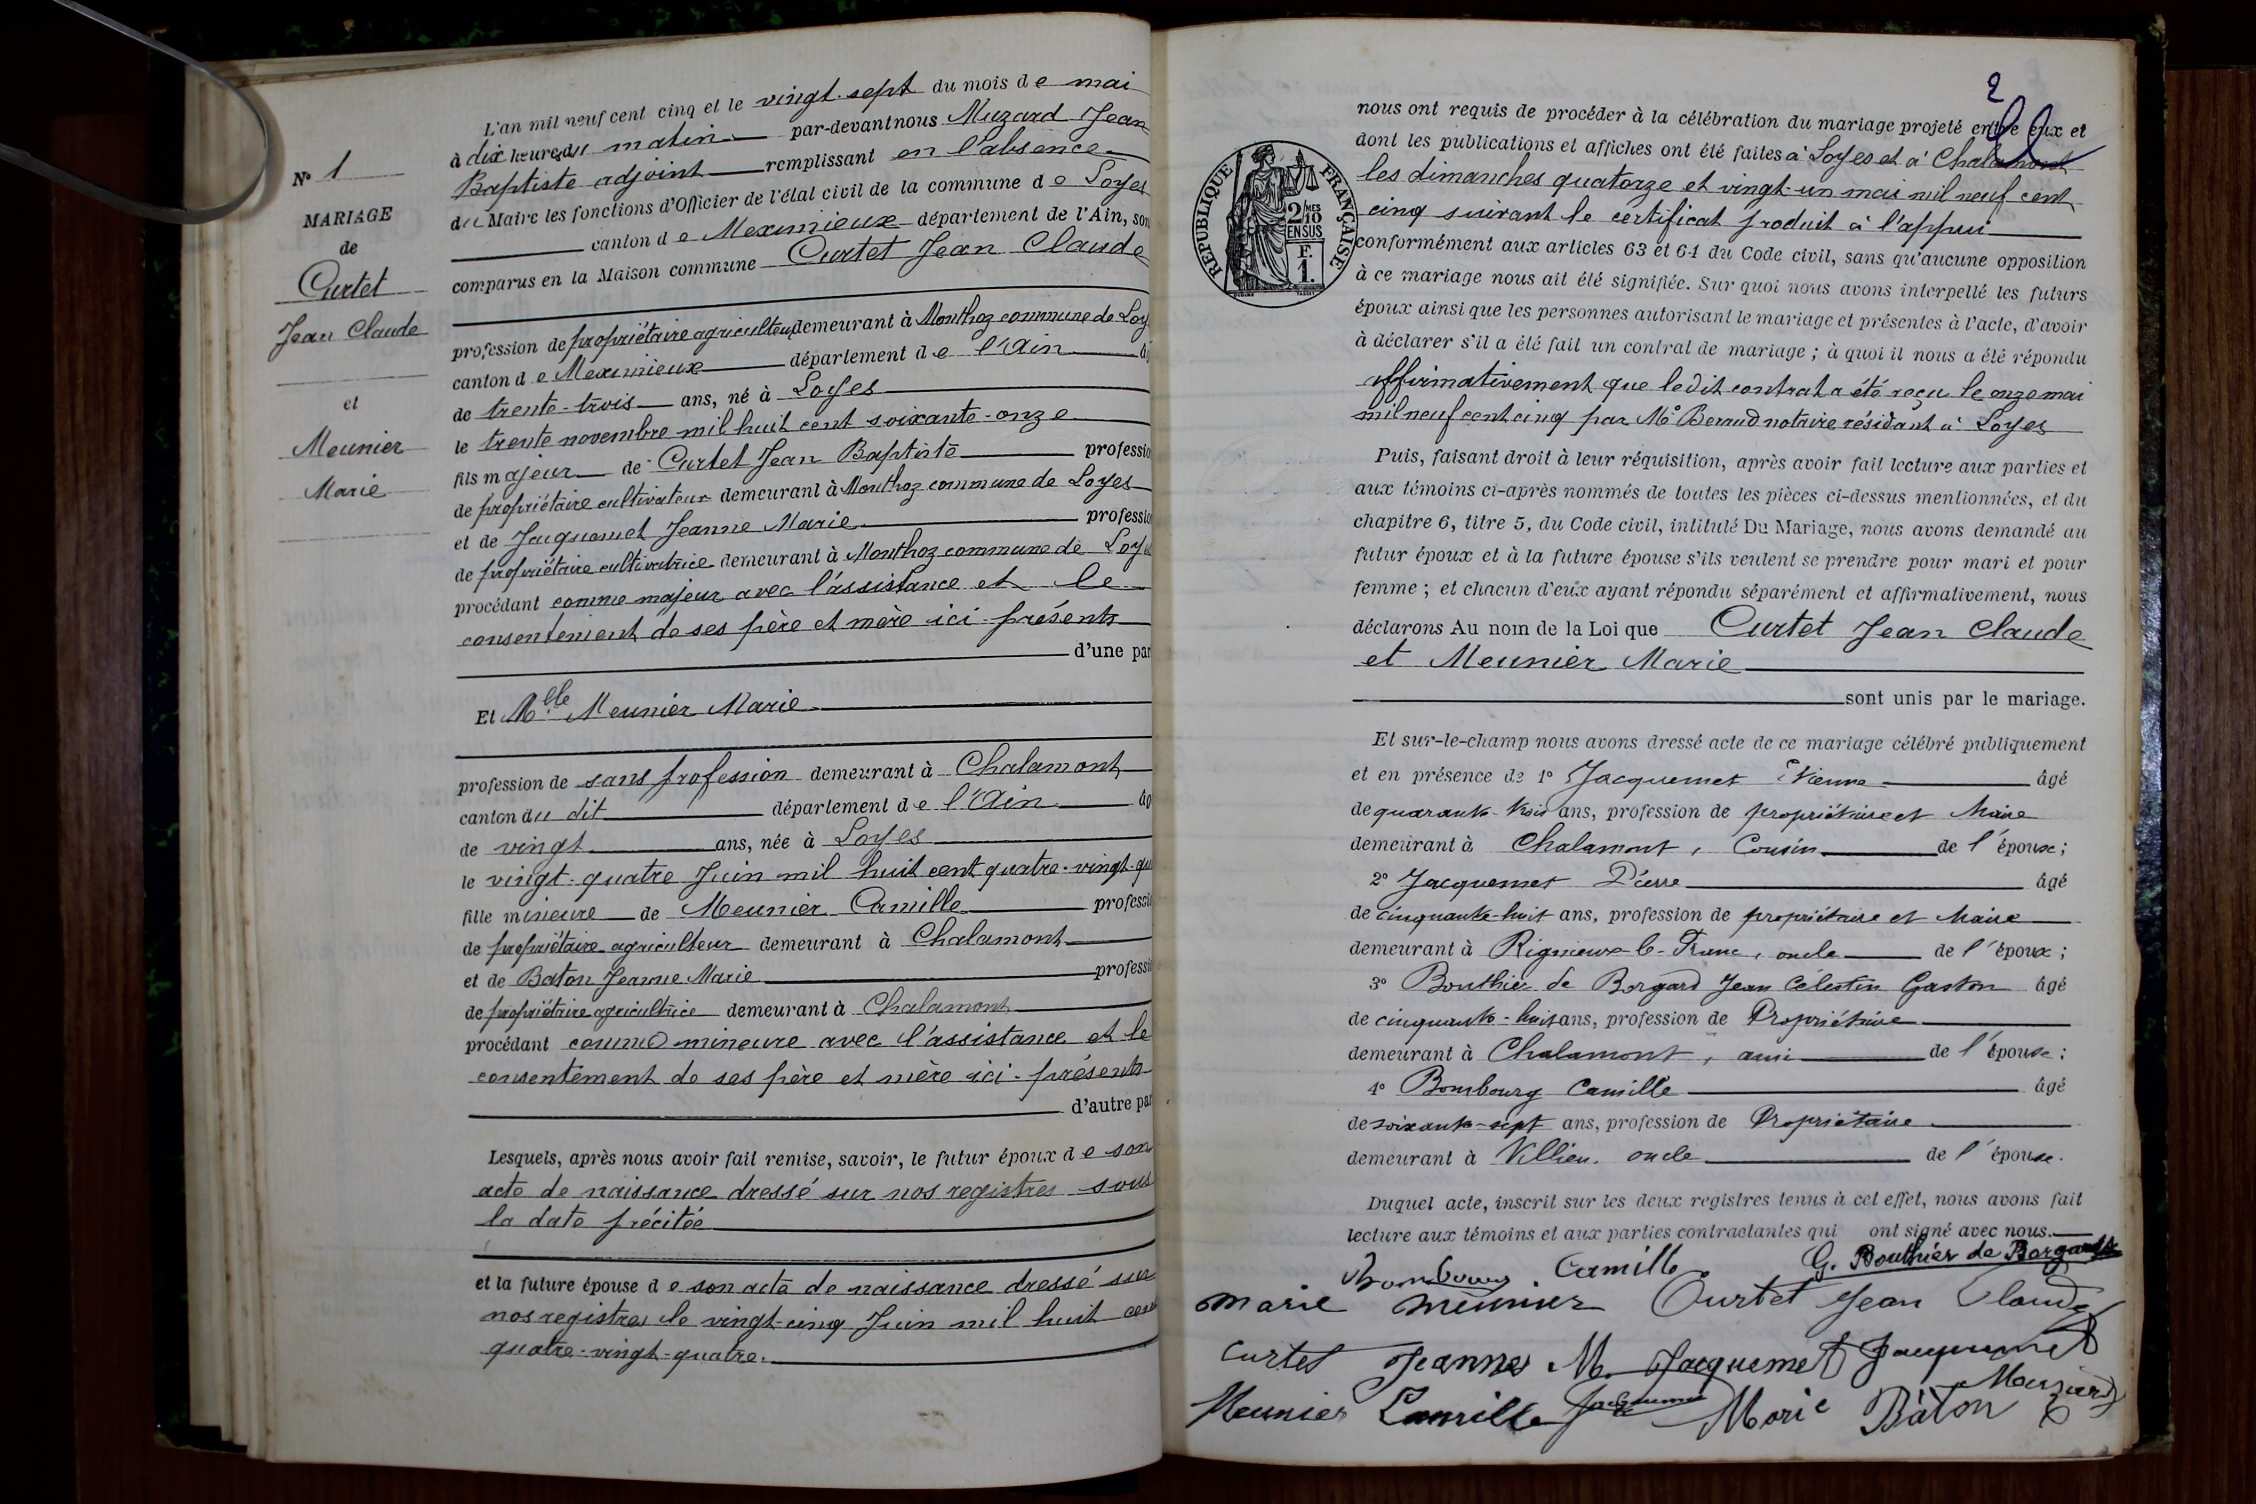 N° 1
MARIAGE
de
Curtet
Jean Claude
et
Meunier
Marie
L'an mil neuf cent cinq et le vingt-sept du mois de mai
à dix heures du matin par-devant nous Muzard Jean
Baptiste adjoint remplissant en l'absence
du Maire les fonctions d'Officier de l'état civil de la commune de Loyes
canton de Meximieux département de l'Ain, son
comparus en la Maison commune Curtet Jean Claude
profession de propriétaire agriculteur demeurant à Monthoz commune de Loy
canton de Meximieux département de l'Ain âg
de trente-trois ans, né à Loyes
le trente novembre mil huit cent soixante-onze
fils majeur de Curtet Jean Baptiste professio
de propriétaire cultivateur demeurant à Monthoz commune de Loyes
et de Jacquemet Jeanne Marie professio
de propriétaire cultivatrice demeurant à Monthoz commune de Loyes
procédant comme majeur avec l'assistance et le
consentement de ses père et mère ici-présents
d'une par
Et Melle Meunier Marie
profession de sans profession demeurant à Chalamont
canton du dit département de l'Ain âg
de vingt ans, née à Loyes
le vingt-quatre Juin mil huit cent quatre-vingt-qu
fille mineure de Meunier Camille professio
de propriétaire agriculteur demeurant à Chalamont
et de Baton Jeanne Marie professi
de propriétaire agricultrice demeurant à Chalamont
procédant comme mineure avec l'assistance et le
consentement de ses père et mère ici-présents
d'autre par
Lesquels, après nous avoir fait remise, savoir, le futur époux de son
acte de naissance dressé sur nos registres sous
la date précitée
et la future épouse de son acte de naissance dressé sur
nos registres le vingt-cinq Juin mil huit cent
quatre-vingt-quatre.
2
RÉPUBLIQUE FRANÇAISE
2/10 MES
EN SUS
1 F.
nous ont requis de procéder à la célébration du mariage projeté entre eux et
dont les publications et affiches ont été faites à Loyes et à Chalamont
les dimanches quatorze et vingt-un mai mil neuf cent
cinq suivant le certificat produit à l'appui
conformément aux articles 63 et 64 du Code civil, sans qu'aucune opposition
à ce mariage nous ait été signifiée. Sur quoi nous avons interpellé les futurs
époux ainsi que les personnes autorisant le mariage et présentes à l'acte, d'avoir
à déclarer s'il a été fait un contrat de mariage ; à quoi il nous a été répondu
affirmativement que ledit contrat a été reçu le onze mai
mil neuf cent cinq par Me Beraud notaire résidant à Loyes
Puis, faisant droit à leur réquisition, après avoir fait lecture aux parties et
aux témoins ci-après nommés de toutes les pièces ci-dessus mentionnées, et du
chapitre 6, titre 5, du Code civil, intitulé Du Mariage, nous avons demandé au
futur époux et à la future épouse s'ils veulent se prendre pour mari et pour
femme ; et chacun d'eux ayant répondu séparément et affirmativement, nous
déclarons Au nom de la Loi que Curtet Jean Claude
et Meunier Marie
sont unis par le mariage.
Et sur-le-champ nous avons dressé acte de ce mariage célébré publiquement
et en présence de 1° Jacquemet Etienne âgé
de quarante-trois ans, profession de propriétaire et Maire
demeurant à Chalamont, Cousin de l'épouse;
2° Jacquemet Pierre âgé
de cinquante-huit ans, profession de propriétaire et Maire
demeurant à Rignieux-le-Franc, oncle de l'époux;
3° Bouthier de Borgard Jean Célestin Gaston âgé
de cinquante-huit ans, profession de Propriétaire
demeurant à Chalamont, ami de l'épouse;
4° Bombourg Camille âgé
de soixante-sept ans, profession de Propriétaire
demeurant à Villieu, oncle de l'épouse.
Duquel acte, inscrit sur les deux registres tenus à cet effet, nous avons fait
lecture aux témoins et aux parties contractantes qui ont signé avec nous.
Bombourg Camille G. Bouthier de Borgard
marie meunier Curtet Jean Claude
Curtet Jeanne M. Jacquemet Jacquemet
Meunier Camille Jacquemet Marie Bâton Muzard